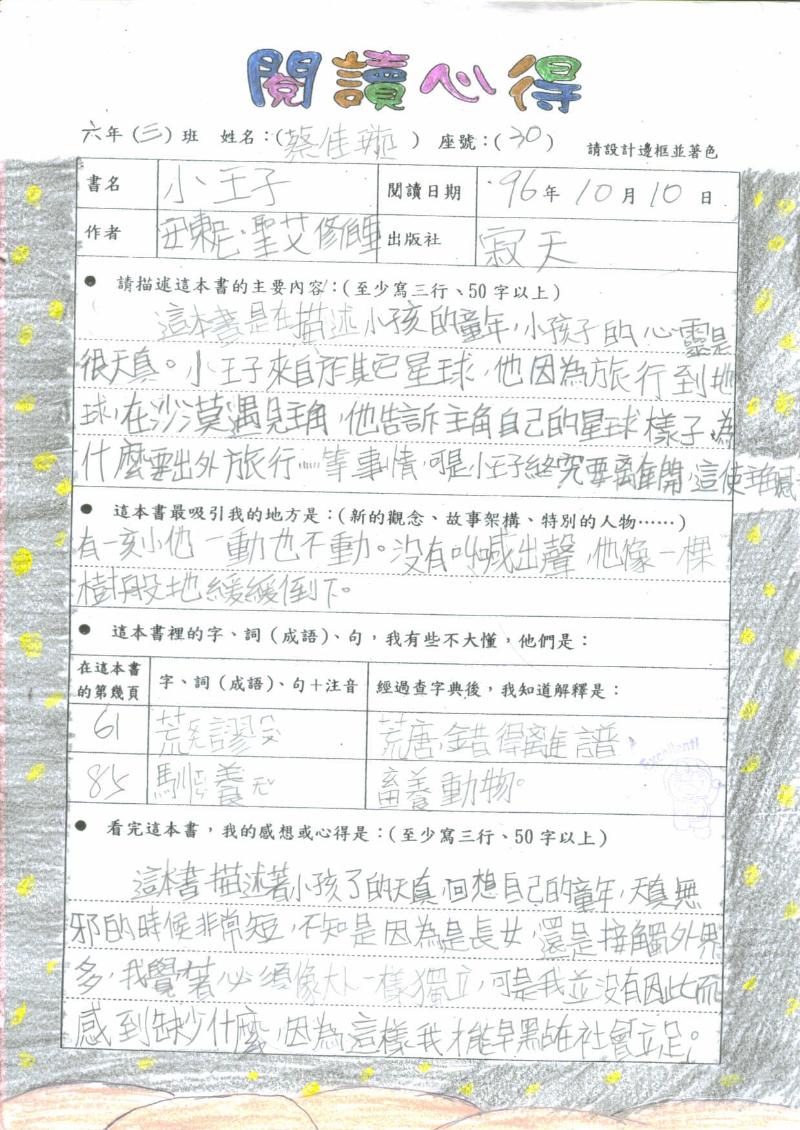 閱讀心得
六年(三)班 姓名:(蔡佳璇) 座號:(30) 請設計邊框並著色
書名 小王子 閱讀日期 96年10月10日
作者 安東尼·聖艾修伯里 出版社 寂天
● 請描述這本書的主要內容:(至少寫三行、50字以上)
這本書是在描述小孩的童年,小孩子的心靈是
很天真。小王子來自於其它星球,他因為旅行到地
球,在沙漠遇見主角,他告訴主角自己的星球樣子,為
什麼要出外旅行……等事情,可是小王子終究要離開,這使主角感
● 這本書最吸引我的地方是:(新的觀念、故事架構、特別的人物……)
有一刻小他一動也不動。沒有叫喊出聲,他像一棵
樹般地緩緩倒下。
● 這本書裡的字、詞(成語)、句,我有些不大懂,他們是:
在這本書的第幾頁 字、詞(成語)、句+注音 經過查字典後,我知道解釋是:
61 荒謬 荒唐,錯得離譜。
85 馴養 畜養動物。
Excellent!
● 看完這本書,我的感想或心得是:(至少寫三行、50字以上)
這本書描述著小孩子的天真,回想自己的童年,天真無
邪的時候非常短,不知是因為是長女,還是接觸外界
多,我覺著必須像大人一樣獨立,可是我並沒有因此而
感到缺少什麼,因為這樣,我才能早點在社會立足。